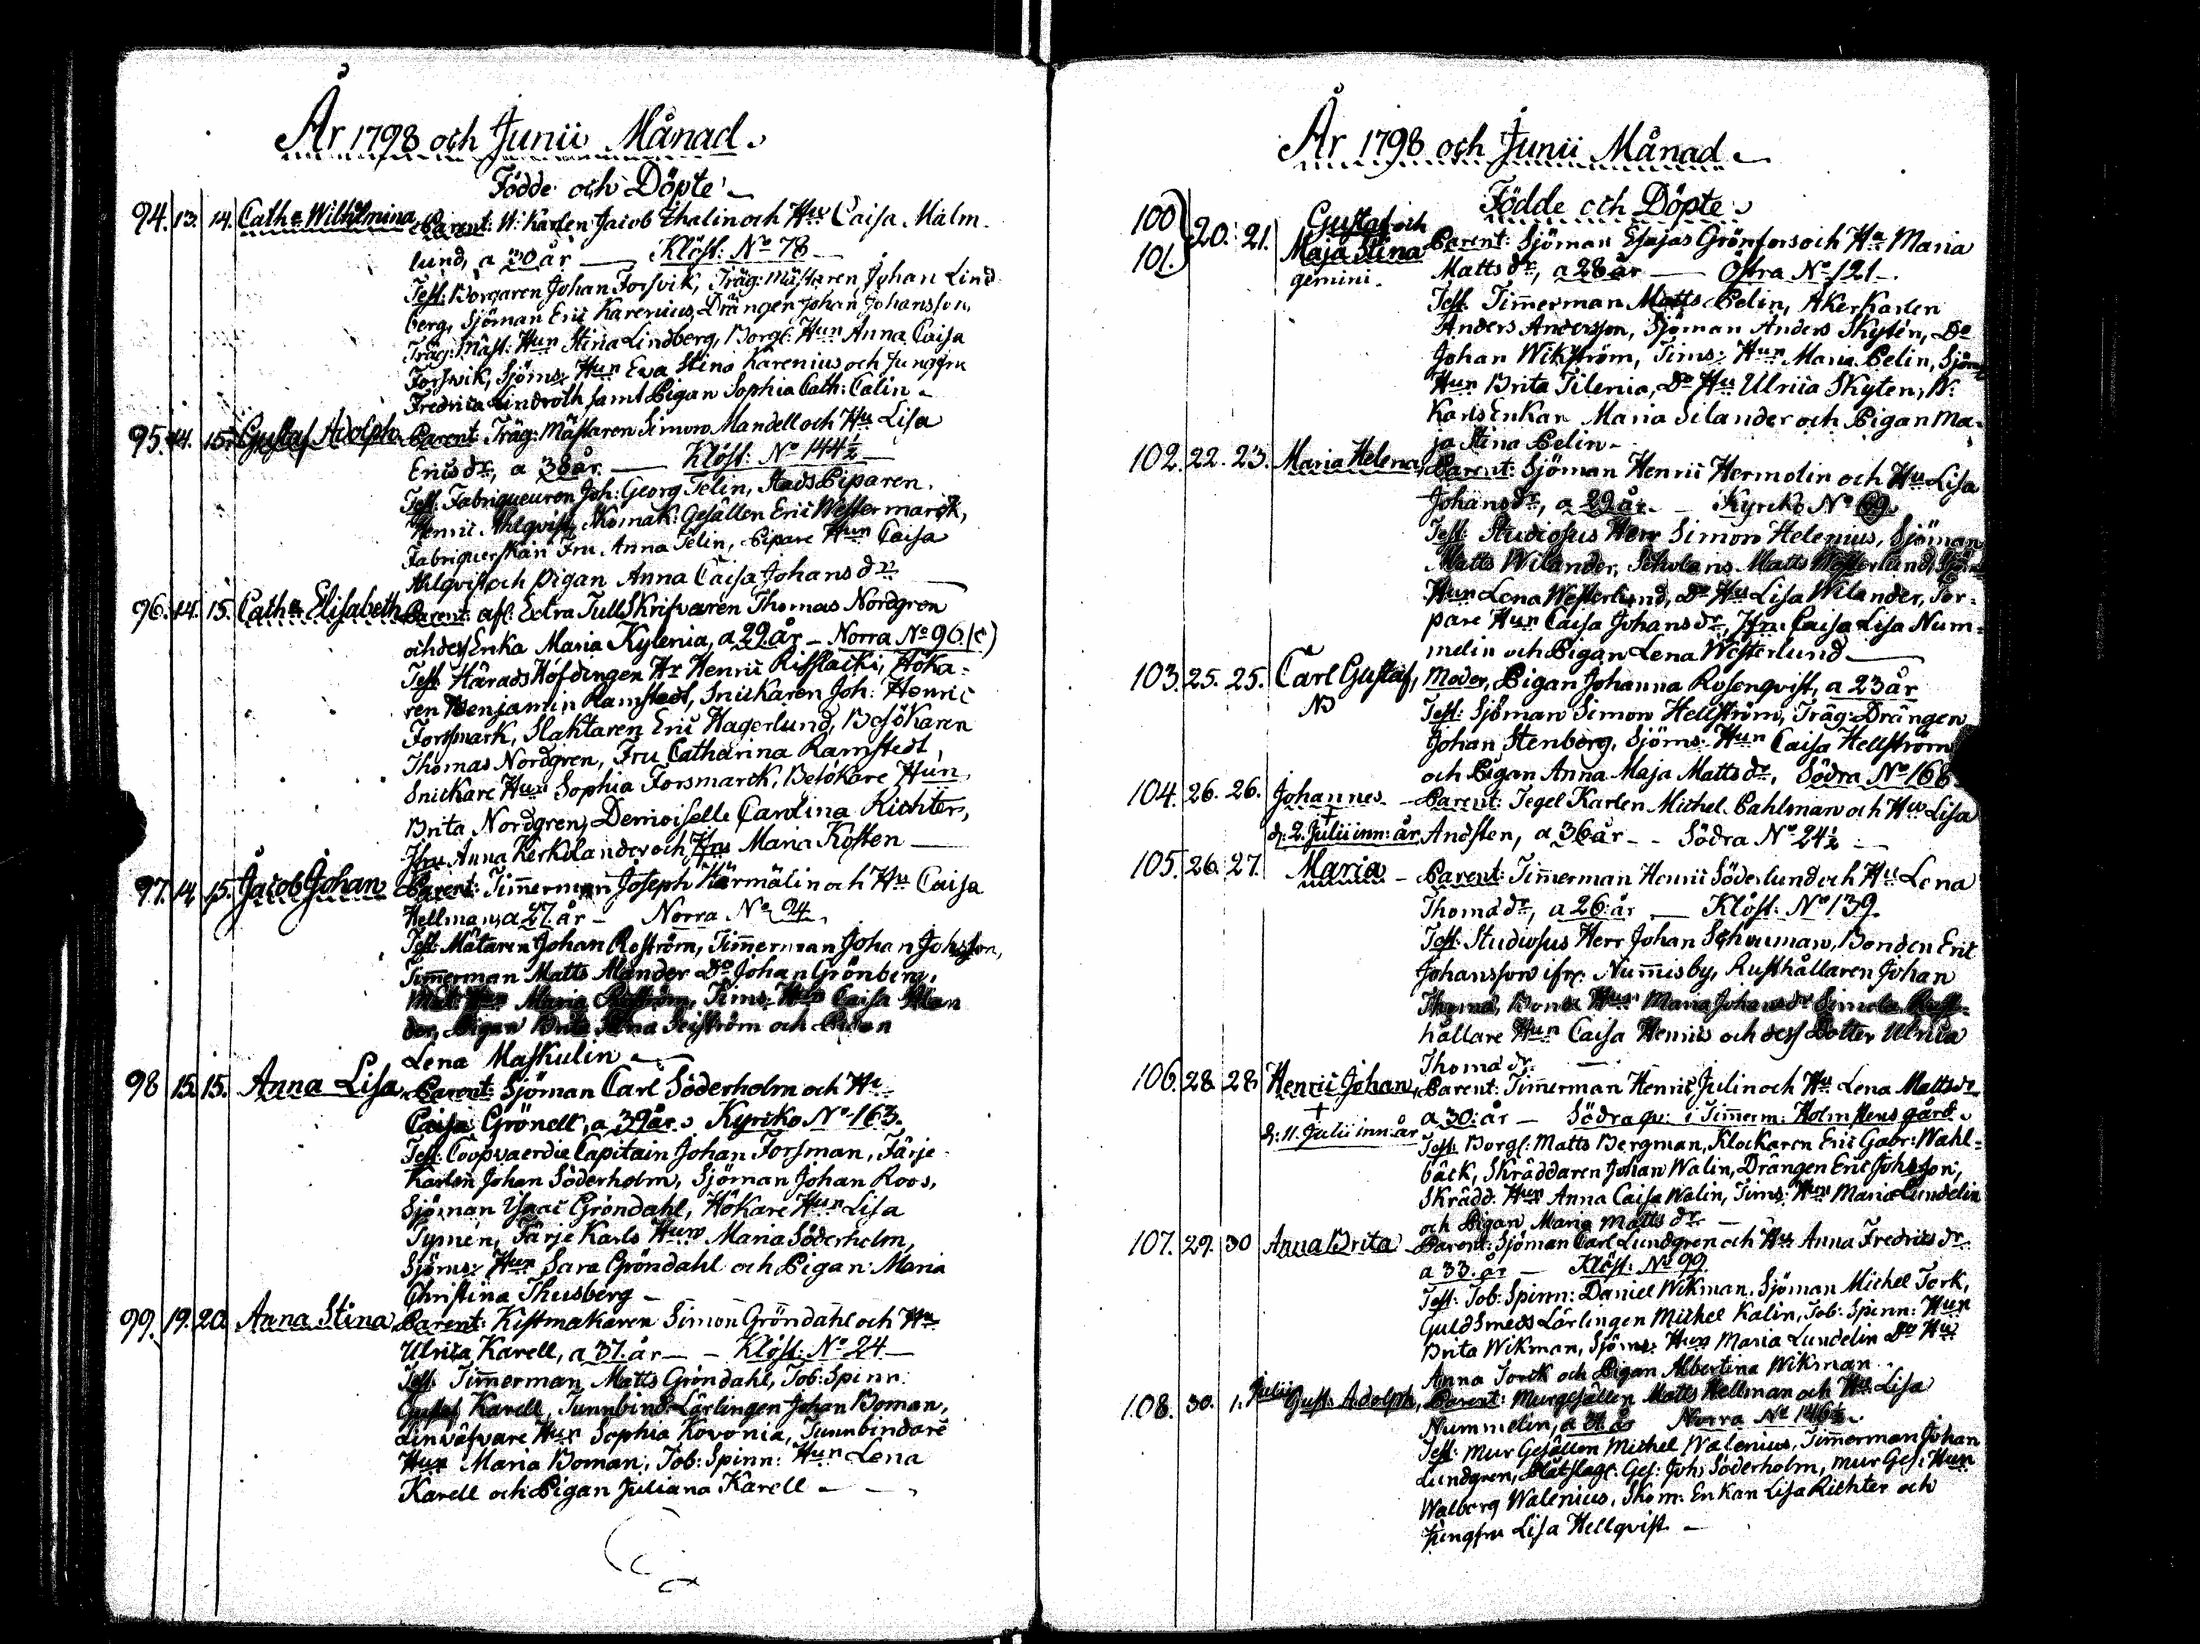 År 1798 och Junii Månad.
Födde och Döpte
94. 13. 14. Cath:a Wilhelmina Parent: W: Karlen Jacob Thalin och Hu Caisa Malm-
lund, a 30 år — Klöst: No 78 —
Test: Borgaren Johan Forsvik, Träg: Mästaren Johan Lind-
berg, Sjöman Eric Karenius, Drängen Johan Johansson,
Träg: Mäst: Hun Stina Lindberg, Borgl: Hun Anna Caisa
Forsvik, Sjöms: Hun Eva Stina Karenius och Jungfru
Fredrica Lindroth samt Pigan Sophia Cath: Calin
95. 14. 15. Gustaf Adolph Parent Träg: Mästaren Simon Mandell och Hu Lisa
Erics dr, a 38 år — Klöst: No 144½ —
Test: Fabriqueuren Joh: Georg Telin, Stads Piparen
Henric Ahlqvist, Skomak: Gesällen Eric Westermarck,
Fabriquerskan Fru Anna Telin, Pipare Hun Caisa
Ahlqvist och Pigan Anna Caisa Johans dr —
96. 14. 15. Cath:a Elisabeth Parent: afl: Extra TullSkrifvaren Thomas Nordgren
och dess Enka Maria Kylenia, a 29 år — Norra No 96 (c)
Test: HäradsHöfdingen Hr Henric Risslachi, Höka-
ren Benjamin Ramstedt, Snickaren Joh: Henric
Forssmark, Slaktaren Eric Hagerlund, Besökaren
Thomas Nordgren, Fru Catharina Ramstedt,
Snickare Hun Sophia Forsmarck, Besökare Hun
Brita Nordgren, Demoiselle Carolina Richter,
Jfru Anna Kerkolander och Jfru Maria Kosten —
97. 14. 15. Jacob Johan Parent: Timmerman Joseph Härmälin och Hu Caisa
Hellman, a 27 år — Norra No 24.
Test: Mätaren Johan Roström, Timmerman Johan Johsson,
Timmerman Matts Mander Do Johan Grönberg,
Mät: Hun Maria Roström, Tims: Hun Caisa Man
der, Pigan Brita Stina Seiström och Pigan
Lena Maskulin —
98 15. 15. Anna Lisa Parent: Sjöman Carl Söderholm och Hu
Caisa Grönell, a 39 år. Kyrko No 163.
Test: Coopvaerdie Capitain Johan Forsman, Färje
Karlen Johan Söderholm, Sjöman Johan Roos,
Sjöman Ysaac Gröndahl, Hökare Hun Lisa
Tymén, Färje Karls Hun Maria Söderholm,
Sjöms: Hun Sara Gröndahl och Pigan Maria
Christina Thusberg —
99. 19. 20. Anna Stina Parent: Kistmakaren Simon Gröndahl och Hu
Ulrica Karell, a 37. år — Klöst: No 24 —
Test: Timmerman Matts Gröndahl, Tob: Spinn:
Gustaf Karell, Tunnbind: Lärlingen Johan Boman,
Linväfvare Hun Sophia Kovonia, Tunnbindare
Hun Maria Boman, Tob: Spinn: Hun Lena
Karell och Pigan Juliana Karell —
År 1798 och Junii Månad
Födde och Döpte
100 101. 20. 21. Gustaf och
Maja Stina Parent: Sjöman Esajas Grönfors och Hu Maria
gemini. Matts dr, a 28 år — Östra No 121 —
Test. Timmerman Matts Pelin, Åker Karlen
Anders Andersson, Sjöman Anders Skytén, Do
Johan Wikström, Tims: Hun Maria Pelin, Sjöms
Hun Brita Tilenia, Do Hu Ulrica Skyten, W:
Karls Enkan Maria Silander och Pigan Ma-
ja Stina Pelin —
102. 22. 23. Maria Helena, Parent: Sjöman Henric Hermolin och Hu Lisa
Johans dr, a 29 år — Kyrko No 69
Test: Studiosus Herr Simon Helenius, Sjöman
Matts Wilander, Scholaris Matts Westerlund, Sjöms
Hun Lena Westerlund, Do Hu Lisa Wilander, Tor-
pare Hun Caisa Johans dr, Jfru Caisa Lisa Num-
melin och Pigan Lena Westerlund —
103. 25. 25. Carl Gustaf, Moder, Pigan Johanna Rosenqvist, a 23 år
Test: Sjöman Simon Hellström, Träg: Drängen
Johan Stenberg, Sjöms: Hun Caisa Hellström
och Pigan Anna Maja Matts dr, Södra No 168
104. 26. 26. Johannes — Parent: Tegel Karlen Michel Pahlman och Hu Lisa
d: 2. Julii inn: år. Andsten, a 36 år — Södra No 24½
105. 26. 27. Maria — Parent: Timmerman Henric Söderlund och Hu Lena
Thomæ dr, a 26 år — Klöst: No 139.
Test: Studiosus Herr Johan Schouman, Bonden Eric
Johansson ifrån Nummisby, Rusthållaren Johan
Thomæ, Bonde Hun Maria Johans dr Simola, Rust-
hållare Hun Caisa Henrics och dess Dotter Ulrica
Thomæ dr —
106. 28. 28. Henric Johan, Parent: Timmerman Henric Julin och Hu Lena Matts dr
a 30 år — Södra qv: i Timmerm: Holmstens gård.
d: 11. Julii inn: år Test: Borgl: Matts Bergman, Klockaren Eric Gabr: Wahl-
bäck, Skräddaren Johan Walin, Drängen Eric Johsson,
Skrädd: Hun Anna Caisa Walin, Tims: Hun Maria Lundelin
och Pigan Maria Matts dr —
107. 29. 30 Anna Brita Parent: Sjöman Carl Lundgren och Hu Anna Fredrics dr
a 33. år — Klöst: No 99.
Test: Tob: Spinn: Daniel Wikman, Sjöman Michel Tork,
GuldSmeds Lärlingen Michel Kalin, Tob: Spinn: Hun
Brita Wikman, Sjöms: Hun Maria Lundelin Do Hu
Anna Torck och Pigan Albertina Wikman
108. 30. 1. Julii Gust: Adolph, Parent: Murgesällen Matts Hellman och Hu Lisa
Nummelin, a 31 år Norra No 146½
Test: Mur Gesällen Michel Walenius, Timmerman Johan
Lundgren, Plåtslag: Ges: Joh: Söderholm, Mur Ges: Hun
Walborg Walenius, Skom: Enkan Lisa Richter och
Jungfru Lisa Hellqvist —